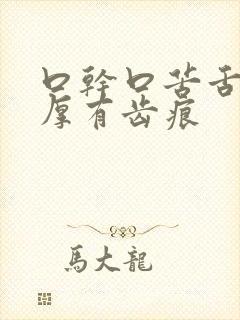 口幹口苦舌
厚有齿痕
馬大龍